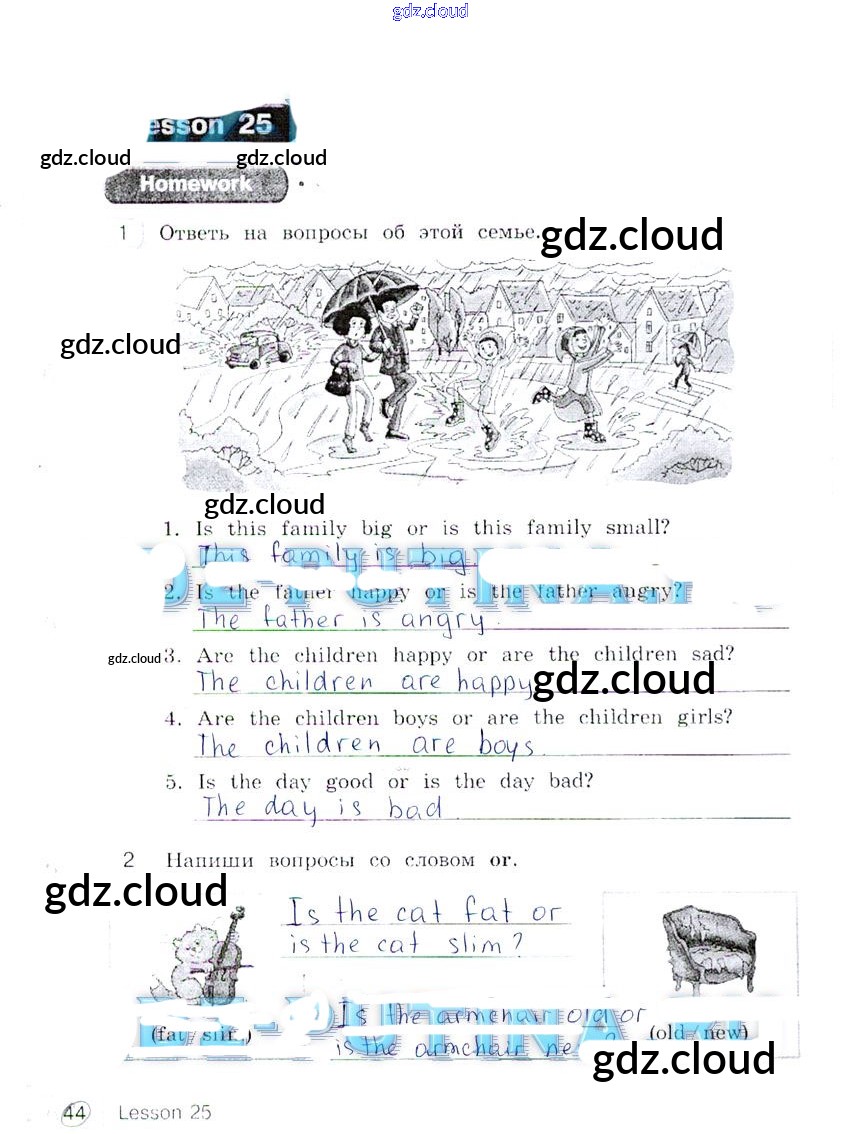 gdz.cloud
esson 25
gdz.cloud gdz.cloud
Homework
1 Ответь на вопросы об этой семье.
gdz.cloud
gdz.cloud
gdz.cloud
1. Is this family big or is this family small?
This family is big
2. Is the father happy or is the father angry?
The father is angry.
gdz.cloud
3. Are the children happy or are the children sad?
The children are happy
gdz.cloud
4. Are the children boys or are the children girls?
The children are boys.
5. Is the day good or is the day bad?
The day is bad
2 Напиши вопросы со словом or.
gdz.cloud
Is the cat fat or
is the cat slim?
Is the armchair old or
(fat / )
(old / new)
is the armchair ne ?
gdz.cloud
44 Lesson 25